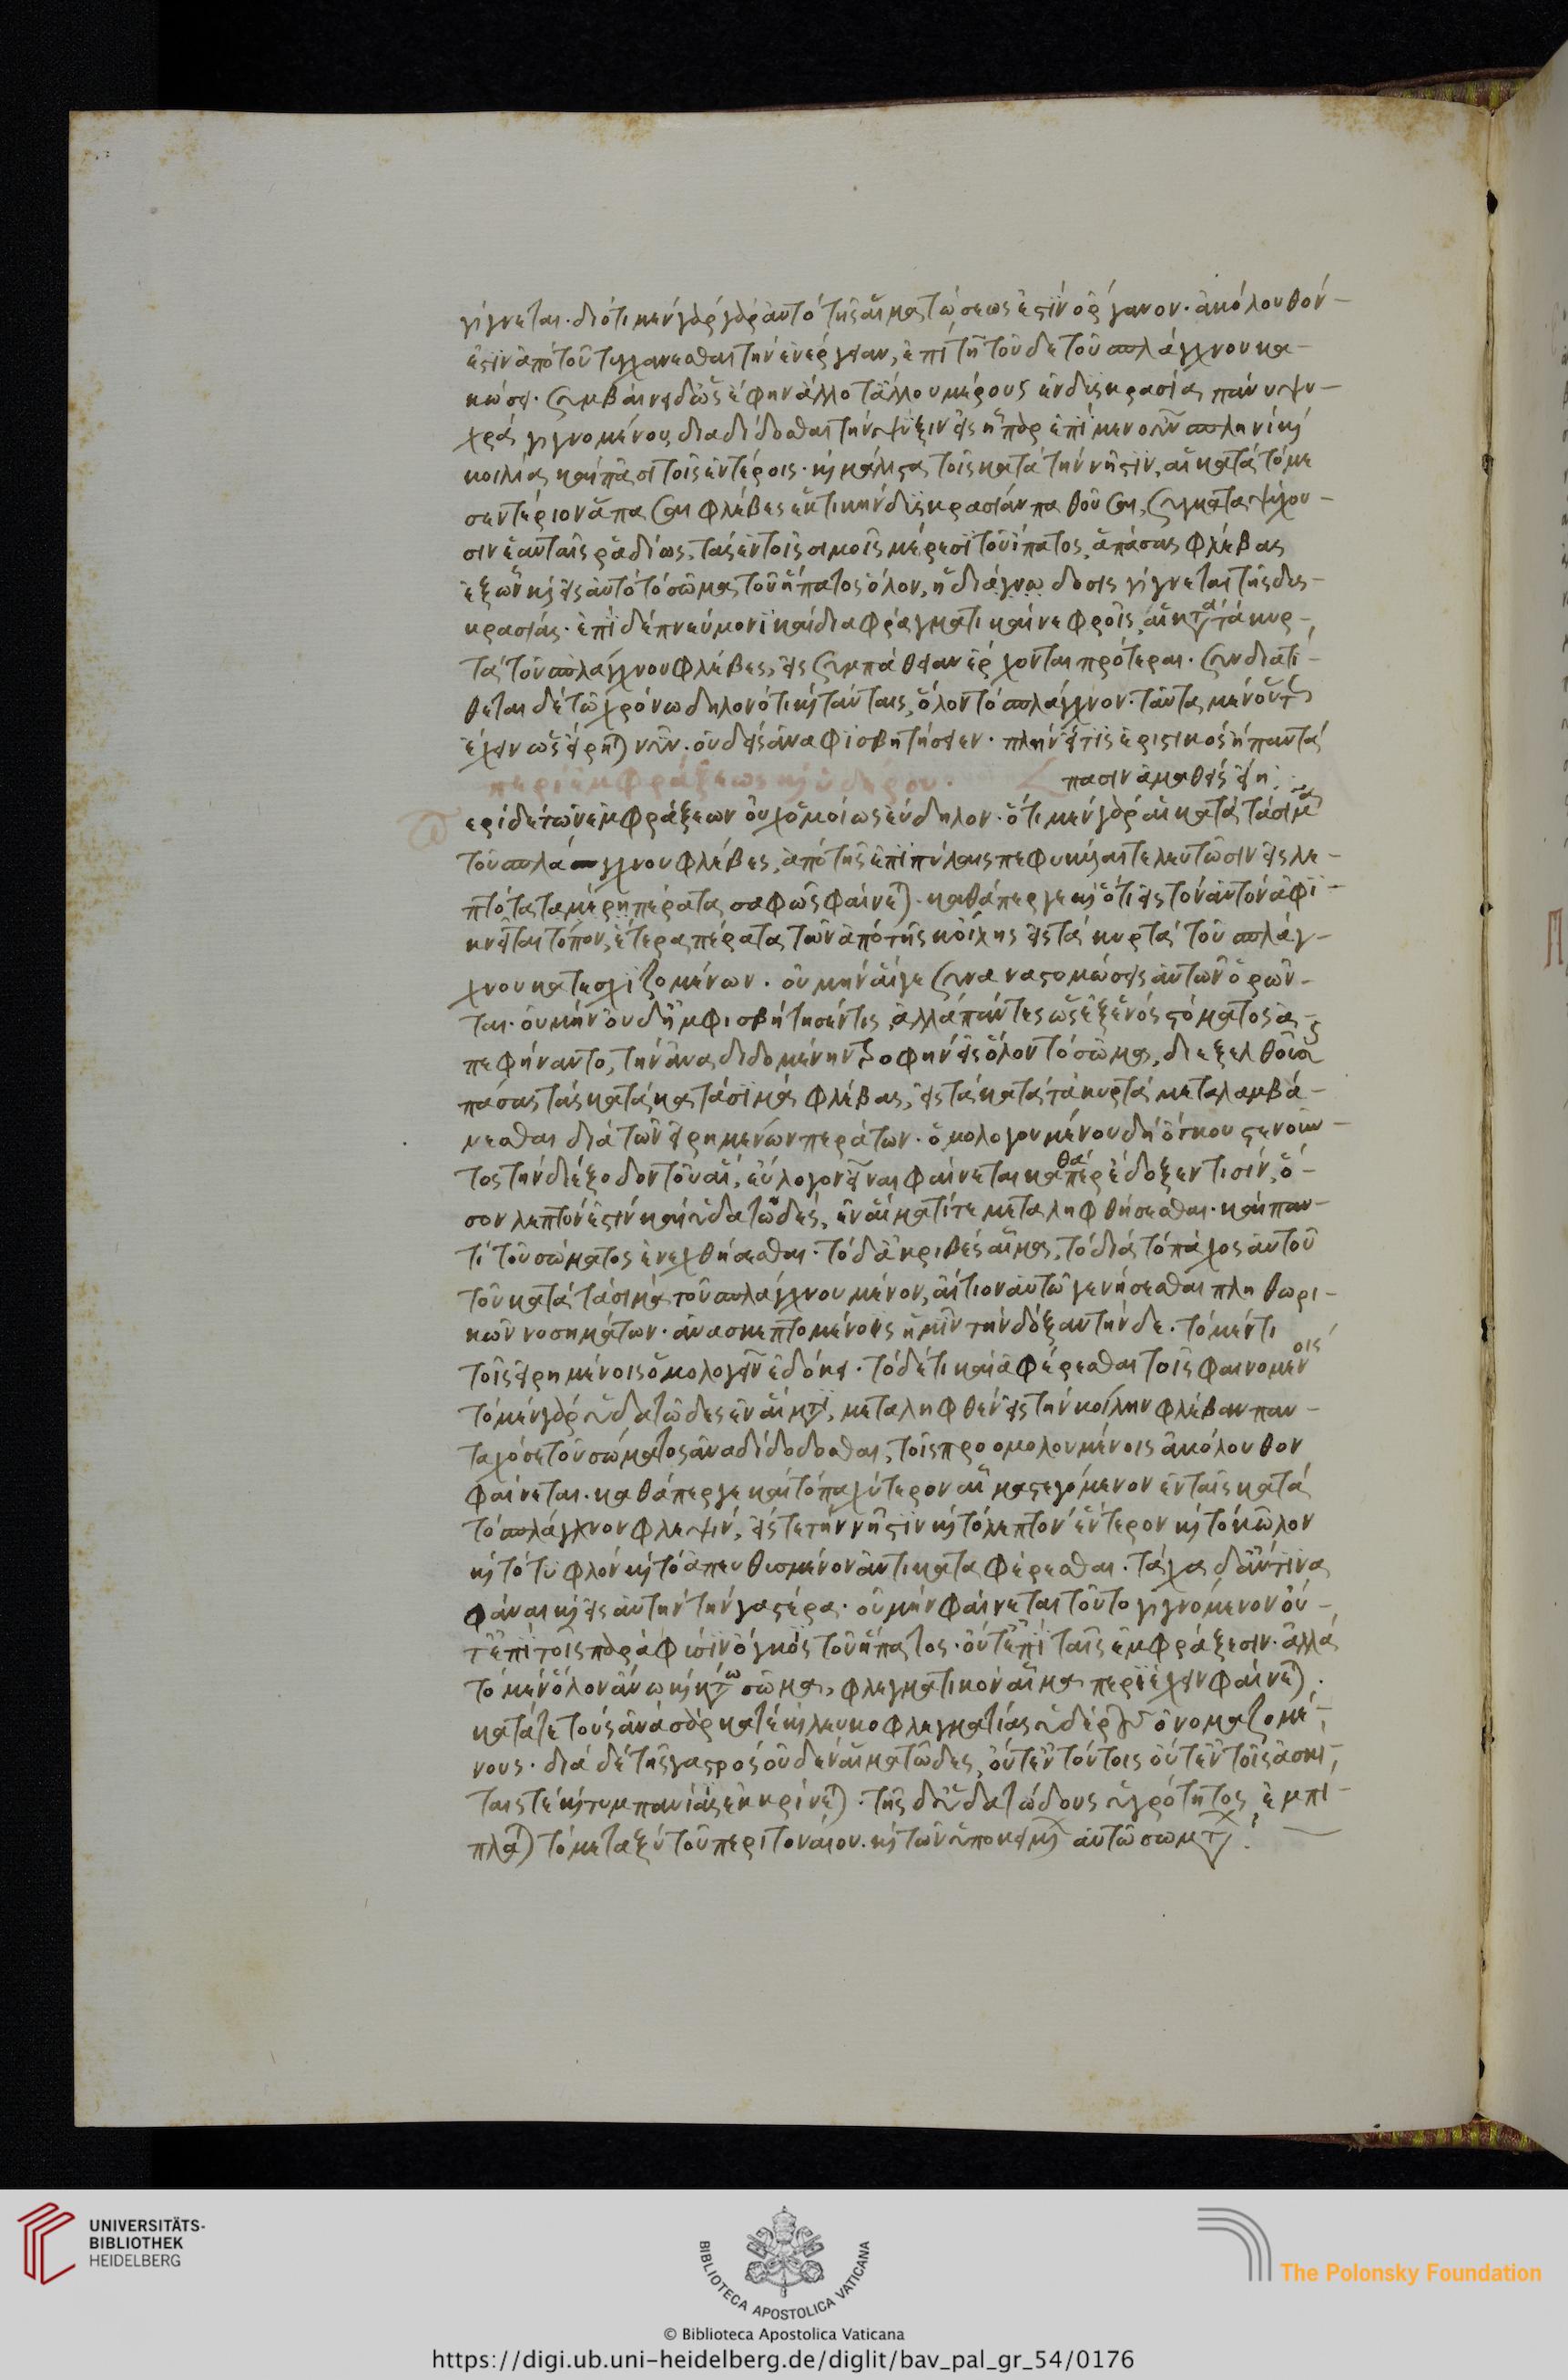 γίγνεται· διότι μὲν γὰρ γὰρ αὐτὸ τῆς αἱματώσεως ἐστὶν ὄργανον· ἀκόλουθόν
ἐστιν ἀπὸ τοῦ τυγχάνεσθαι τὴν ἐνέργειαν, ἐπὶ τῇ τοῦδε τοῦ σπλάγχνου κα-
κώσει· συμβαίνει δ' ὡς ἔφην ἄλλοτ' ἄλλου μέρους ἐν δυσκρασίᾳ πάνυ ψυ-
χρᾷ γιγνομένου, διαδίδοσθαι τὴν ψύξιν εἰς ἧπαρ ἐπὶ μὲν οὖν σπληνὶ καὶ
κοιλίας καὶ πᾶσι τοῖς ἐντέροις· καὶ μάλιστα τοῖς κατὰ τὴν νῆστιν, αἱ κατὰ τὸ με
σεντέριον ἅπασαι φλέβες ἑκτικὴν δυσκρασίαν παθοῦσαι, συγκαταψύχου-
σιν ἑαυταῖς ῥαδίως, τὰς ἐν τοῖς σιμοῖς μέρεσι τοῦ ἥπατος, ἁπάσας φλέβας
ἐξ ὧν καὶ εἰς αὐτὸ τὸ σῶμα τοῦ ἥπατος ὅλον, ἡ διάγνω δοσις γίγνεται τῆς δυσ-
κρασίας· ἐπὶ δὲ πνεύμονι καὶ διαφράγματι καὶ νεφροῖς, αἱ κατὰ τὰ κυρ-
τὰ τοῦ σπλάγχνου φλέβες, εἰς συμπάθειαν ἔρχονται πρότεραι· συνδιατί-
θεται δὲ τῷ χρόνῳ δηλονότι καὶ ταύταις, ὅλον τὸ σπλάγχνον· ταῦτα μὲν οὕτως
ἔχειν ὡς εἴρηται νῦν· οὐδεὶς ἀναφισβητήσειεν· πλὴν εἴ τις ἐριστικὸς ἢ παντά
πασιν ἀμαθὴς εἴη.
περὶ ἐμφράξεως καὶ ὑδέρου.
ερὶ δὲ τῶν ἐμφράξεων οὐχ ὁμοίως εὔδηλον· ὅτι μὲν γὰρ αἱ κατὰ τὰ σιμὰ
τοῦ σπλάγχνου φλέβες, ἀπὸ τῆς ἐπὶ πύλαις πεφυκυῖαι τελευτῶσιν εἰς λε-
πτότατα μέρη πέρατα, σαφῶς φαίνεται· καθάπερ γε καὶ ὅτι εἰς τὸν αὐτὸν ἀφι-
κνεῖται τόπον, ἕτερα πέρατα τῶν ἀπὸ τῆς κοίλης εἰς τὰ κυρτὰ τοῦ σπλάγ-
χνου κατασχιζομένων· οὐ μὴν αἵ γε συναναστομώσεις αὐτῶν ὁρῶν-
ται· οὐ μὴν οὐδ' ἠμφισβήτησέν τις, ἀλλὰ πάντες ὡς ἐξ ἑνὸς στόματος ἀ-
πεφήναντο, τὴν ἀναδιδομένην τροφὴν εἰς ὅλον τὸ σῶμα, διεξελθοῦσαν
πάσας τὰς κατὰ κα τὰ σιμὰ φλέβας, εἰς τὰ κατὰ τὰ κυρτὰ μεταλαμβά-
νεσθαι διὰ τῶν εἰρημένων περάτων· ὁμολογουμένου δὴ ὄγκου στενοῦν-
τος τὴν διέξοδον τοῦ αἵ, εὔλογον εἶναι φαίνεται καθάπερ ἔδοξεν τισίν, ὅ-
σον λεπτόν ἐστιν καὶ ὑδατῶδες, ἐν αἵματί τε μεταληφθήσεσθαι· καὶ παν-
τὶ τοῦ σώματος ἐνεχθήσεσθαι· τὸ δ' ἀκριβὲς αἷμα, τὸ διὰ τὸ πάχος αὐτοῦ
τοῦ κατὰ τὰ σιμὰ τοῦ σπλάγχνου μένον, αἴτιον αὐτῷ γενήσεσθαι πληθωρι-
κῶν νοσημάτων· ἀνασκεπτομένοις ἡμῖν τὴν δόξαν τήνδε. τὸ μέν τι
τοῖς εἰρημένοις ὁμολογεῖν ἐδόκει· τὸ δέ τι καὶ ἀφέρεσθαι τοῖς φαινομένοις
τὸ μὲν γὰρ ὑδατῶδες ἐν αἵματι, μεταληφθὲν εἰς τὴν κοίλην φλέβαν παν-
ταχόσε τοῦ σώματος ἀναδίδοδοσθαι, τοῖς προομολουμένοις ἀκόλουθον
φαίνεται· καθάπερ γε καὶ τὸ παχύτερον αἷμα στεγόμενον ἐν ταῖς κατὰ
τὸ σπλάγχνον φλεψίν, εἴς τε τὴν νῆστιν καὶ τὸ λεπτὸν ἔντερον καὶ τὸ κῶλον
καὶ τὸ τυφλὸν καὶ τὸ ἀπευθυσμένον ἀντικαταφέρεσθαι· τάχα δ' ἄν τινα
φάναι καὶ εἰς αὐτὴν τὴν γαστέρα· οὐ μὴν φαίνεται τοῦτο γιγνόμενον οὐ-
τ' ἐπὶ τοῖς παρὰ φύσιν ὄγκοις τοῦ ἥπατος· οὔτ' ἐπὶ ταῖς ἐμφράξεσιν· ἀλλὰ
τὸ μὲν ὅλον ἄνω καὶ κάτω σῶμα, φλεγματικὸν αἷμα περιέχειν φαίνεται·
κατά τε τοὺς ἀνὰ σάρκα τε καὶ λευκοφλεγματίας ὑδέρους ὀνομαζομέ-
νους· διὰ δὲ τῆς γαστρὸς οὐδὲν αἱματῶδες, οὔτ' ἐν τούτοις οὔτ' ἐν τοῖς ἀσκί-
ταις τε καὶ τυμπανίαις ἐκκρίνεται· τῆς δ' ὑδατώδους ὑγρότητος, ἐμπί-
πλαται τὸ μεταξὺ τοῦ περιτοναίου· καὶ τῶν ὑποκειμένων αὐτῷ σωμάτων:
UNIVERSITÄTS-
BIBLIOTHEK
HEIDELBERG
BIBLIOTECA APOSTOLICA VATICANA
The Polonsky Foundation
© Biblioteca Apostolica Vaticana
https://digi.ub.uni-heidelberg.de/diglit/bav_pal_gr_54/0176